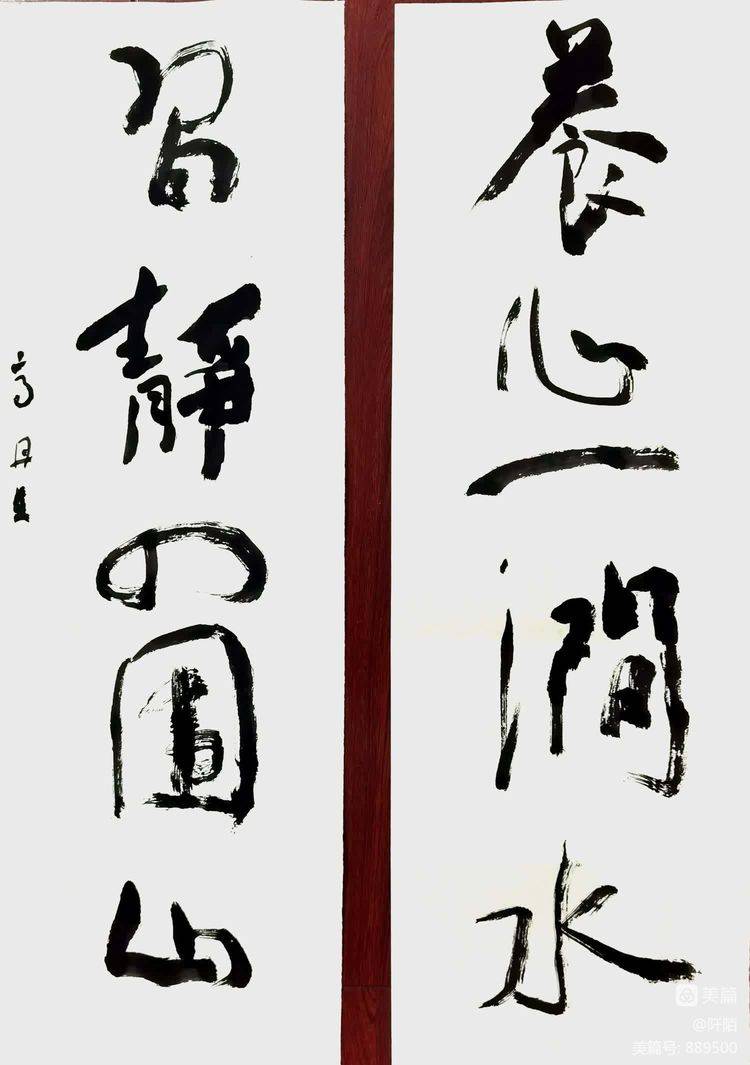 養心一澗水
習靜四圍山
高
美篇
@阡陌
美篇号: 889500